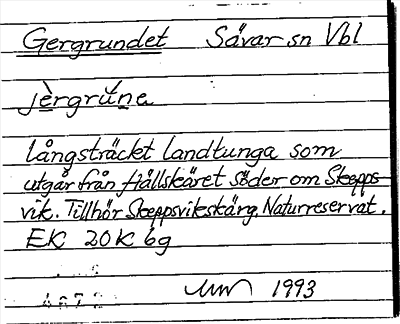 Gergrundet Sävar sn Vbl
jèrgrúne
långsträckt landtunga som
utgår från Hällskäret söder om Skepps-
vik. Tillhör Skeppsvikskärg. Naturreservat.
EK 20K 6g
1993